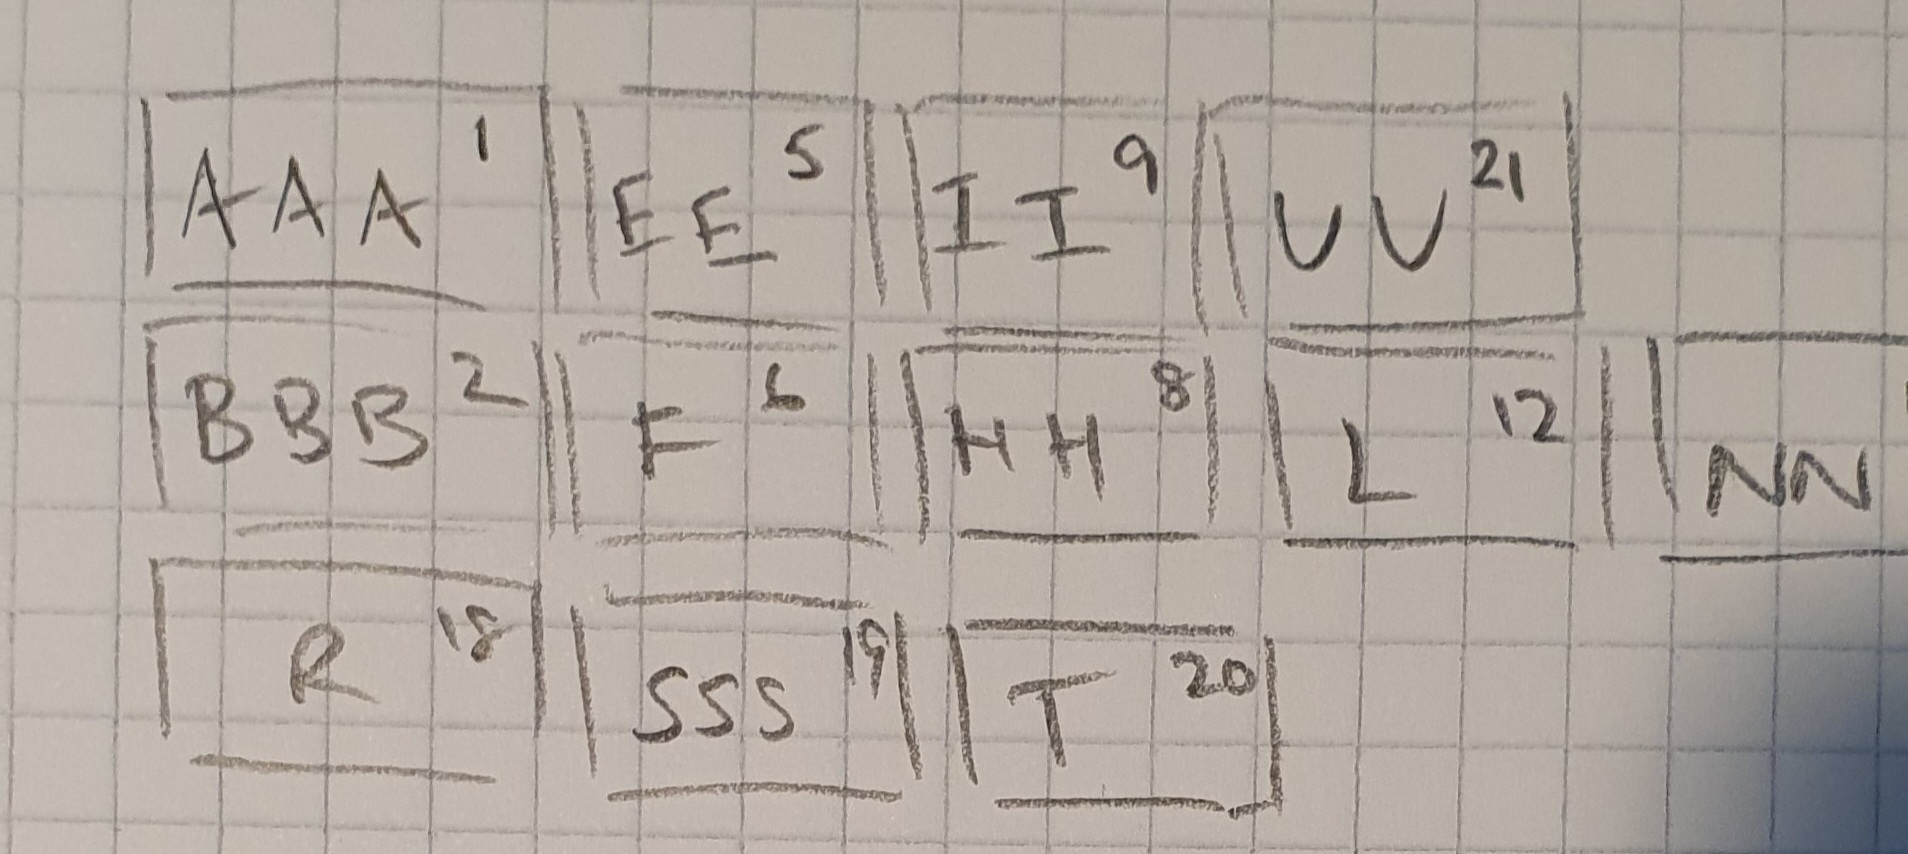 AAA 1 EE 5 II 9 UU 21
BBB 2 F 6 HH 8 L 12 NN
R 18 SSS 19 T 20